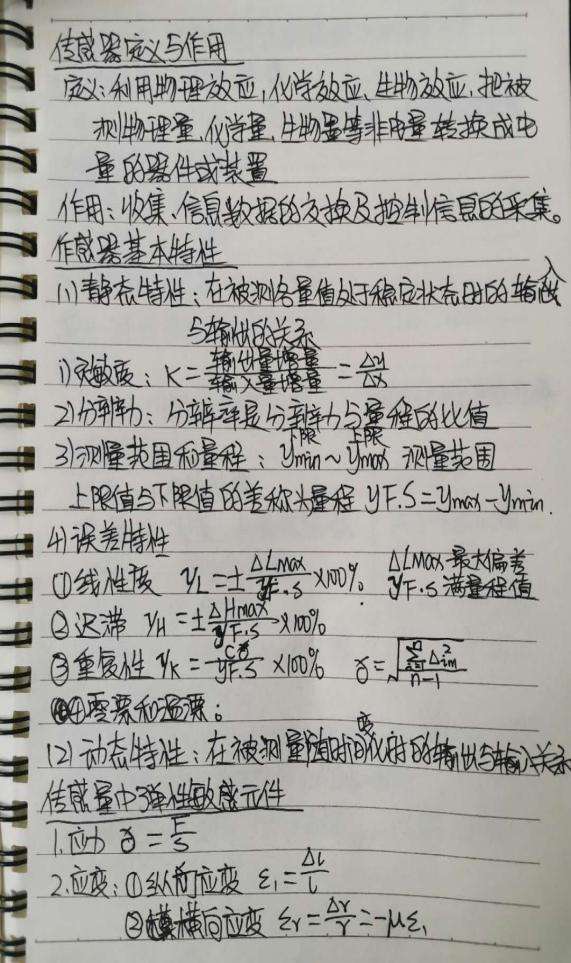 传感器定义与作用
定义:利用物理效应,化学效应、生物效应,把被
测物理量,化学量,生物量等非电量转换成电
量的器件或装置
作用:收集、信息数据的交换及控制信息的采集。
传感器基本特性
(1)静态特性:在被测各量值处于稳定状态时的输入
与输出的关系
1)灵敏度:K=输出量增量/输入量增量=Δy/Δx
2)分辨力:分辨率是分辨力与量程的比值
3)测量范围和量程:下限ymin~上限ymax 测量范围
上限值与下限值的差称为量程 yF.S=ymax-ymin.
4)误差特性
①线性度 γL=±ΔLmax/yF.S×100%. ΔLmax最大偏差
yF.S满量程值
②迟滞 γH=±ΔHmax/yF.S×100%
③重复性 γK=Cσ/yF.S×100% σ=√(∑Δ²im/(n-1))
④零票和温票。
(2)动态特性:在被测量随时间变化时的输出与输入关系
传感量中弹性敏感元件
1.应力 σ=F/S
2.应变:①纵向应变 ε₁=Δl/l
②横向应变 εr=Δr/r=-με₁